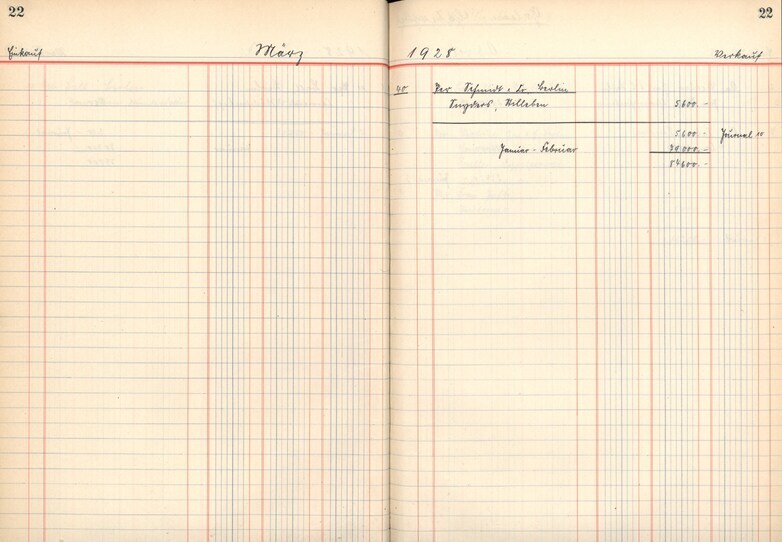 22
Einkauf
März
22
1928
Verkauf
40
Per Schmidt & Co Berlin
Snyders, Stilleben
5.600 -
5.600 -
Journal 10
Januar - Februar
79.000.-
84.600 -